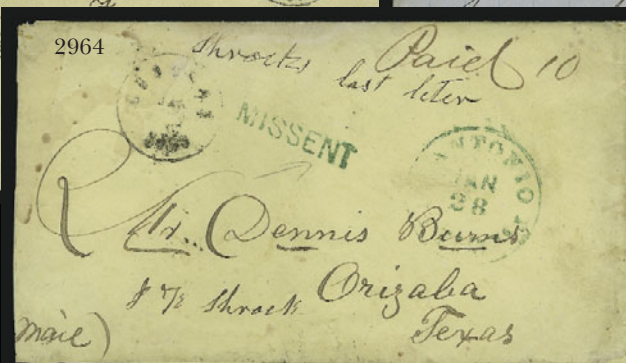 2964
Shrocks
last leter
Paid 10
JAN
MISSENT
ANTONIO
JAN
28
Mr. Dennis Burns
Shrock
Orizaba
Texas
mail)